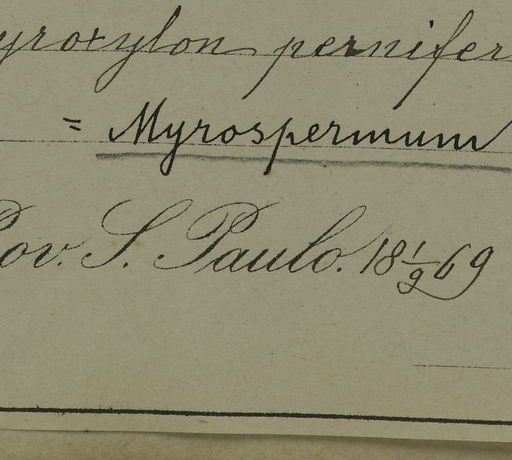 yroxylon pernifer
= Myrospermum
Pov. S. Paulo. 18 1/9 69